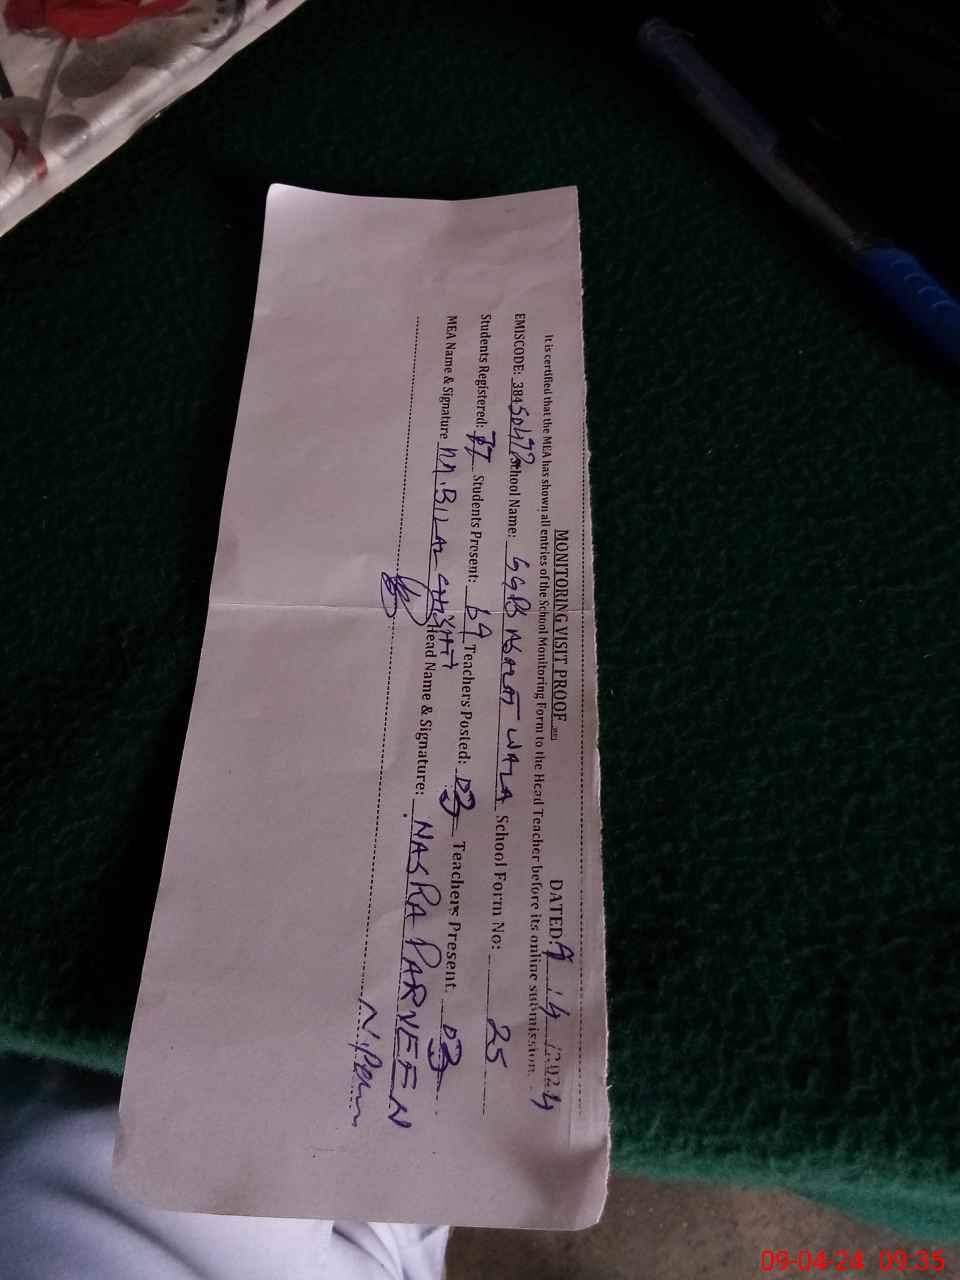 MONITORING VISIT PROOF
DATED: 9/4/2024
It is certified that the MEA has shown all entries of the School Monitoring Form to the Head Teacher before its online submission.
EMISCODE: 38450472 School Name: GGPS ASALAT WALA School Form No: 25
Students Registered: 77 Students Present: 69 Teachers Posted: 03 Teachers Present. 03
MEA Name & Signature M. BILAL CHISHTI Head Name & Signature: NASRA PARVEEN
09-04-24 09:35